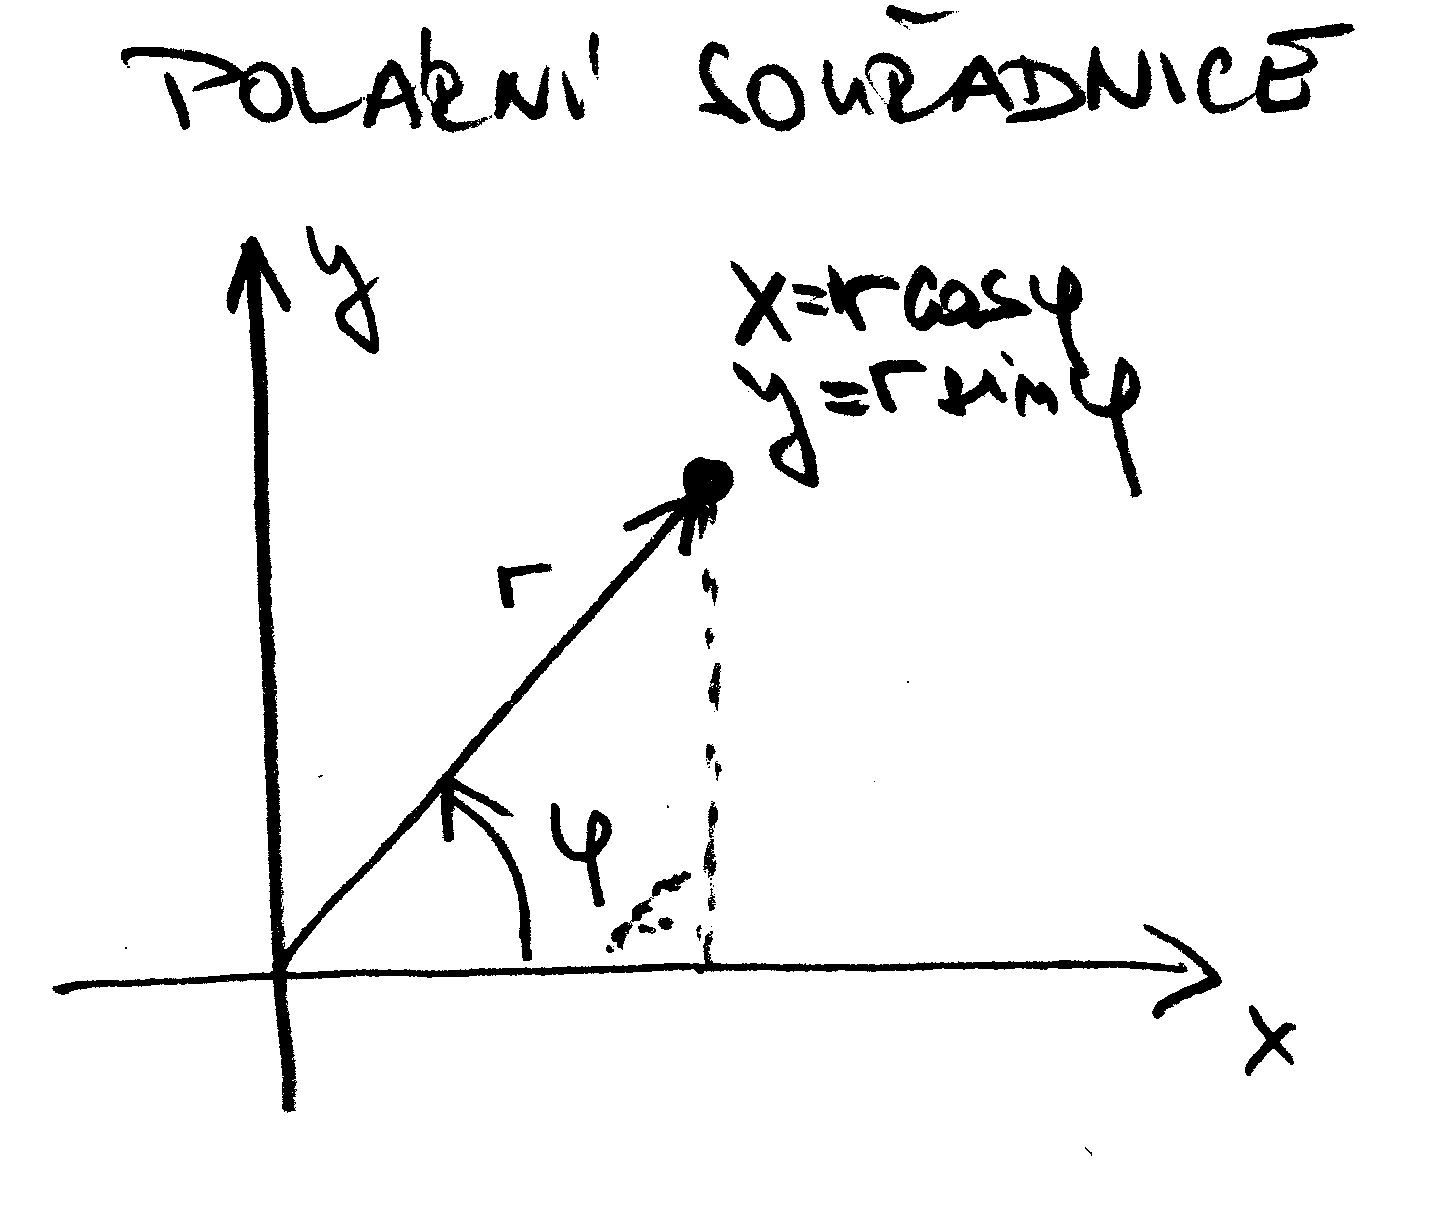 POLÁRNÍ SOUŘADNICE
y
x=r cosφ
y=r sinφ
r
φ
x